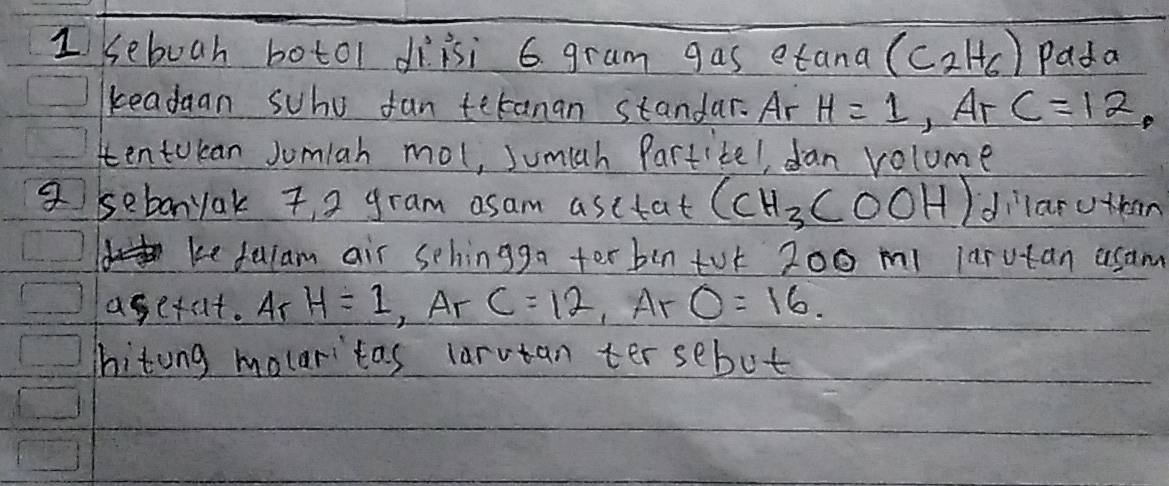 1 sebuah botol diisi 6 gram gas etana (C2H6) pada
keadaan suhu dan tekanan standar. Ar H = 1, Ar C = 12.
tentukan Jumlah mol, Jumlah Partikel, dan volume
2 sebanyak 7,2 gram asam asetat (CH3COOH) dilarutkan
ke dalam air sehingga terbentuk 200 ml larutan asam
asetat. Ar H = 1, Ar C = 12, Ar O = 16.
hitung molaritas larutan tersebut